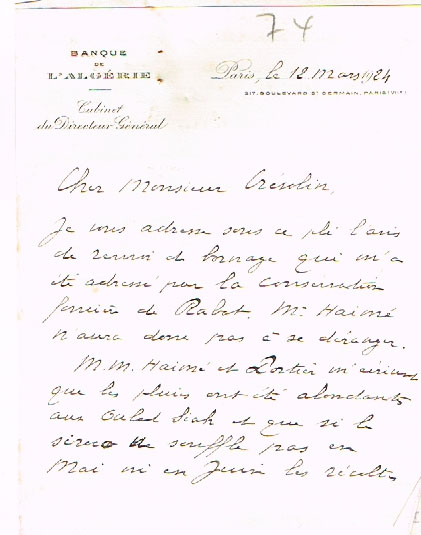 74
BANQUE
DE
L'ALGÉRIE
Cabinet
du Directeur Général
Paris, le 12 Mars 1924
217, BOULEVARD ST GERMAIN, PARIS (VIIe)
Cher Monsieur
Je vous adresse sous ce pli l'avis
de renvoi de bornage qui m'a
été adressé par la conservation
foncière de Rabat. Mr Haimé
n'aura donc pas à se déranger.
M.M. Haimé et m'écrivent
que les pluies ont été abondantes
aux Ouled et que si le
siroco ne souffle pas en
Mai ni en Juin les récoltes